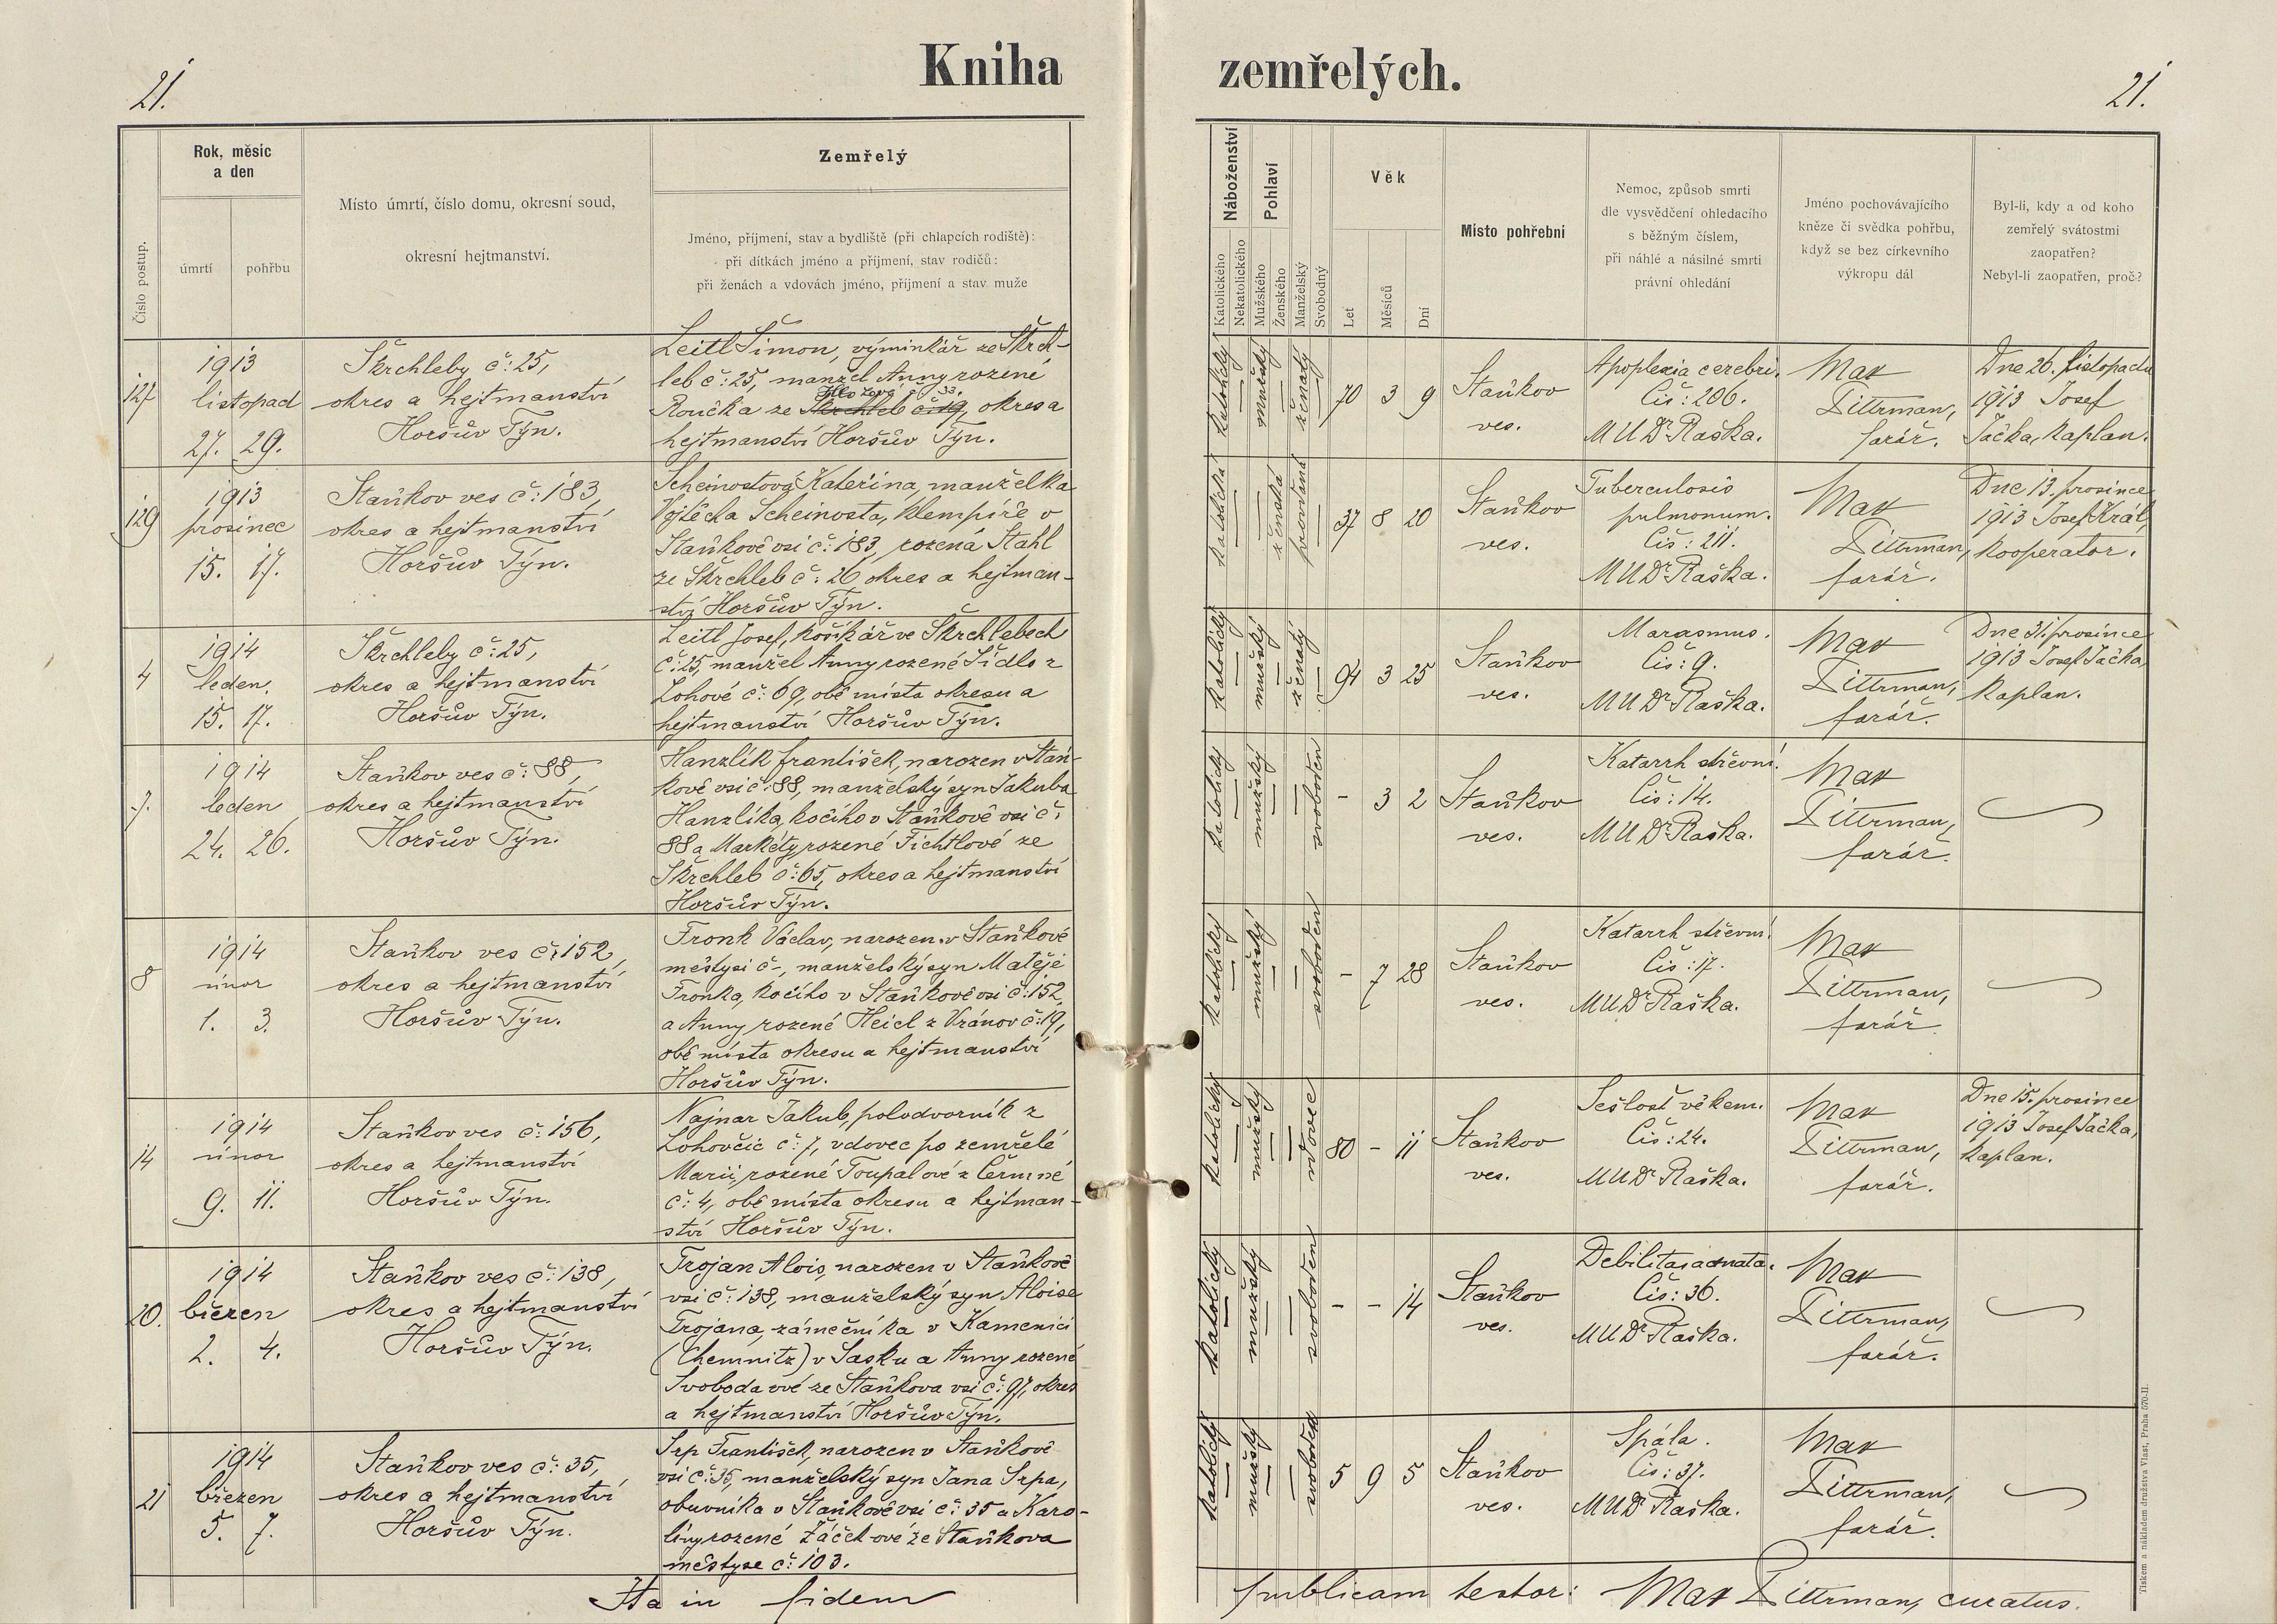 21.
Kniha
zemřelých.
21.
Číslo postup.
Rok, měsíc
a den
úmrtí
pohřbu
Místo úmrtí, číslo domu, okresní soud,
okresní hejtmanství.
Zemřelý
Jméno, příjmení, stav a bydliště (při chlapcích rodiště):
při dítkách jméno a příjmení, stav rodičů:
při ženách a vdovách jméno, příjmení a stav muže
Náboženství
Katolického
Nekatolického
Pohlaví
Mužského
Ženského
Manželský
Svobodný
Věk
Let
Měsíců
Dní
Místo pohřební
Nemoc, způsob smrti
dle vysvědčení ohledacího
s běžným číslem,
při náhlé a násilné smrti
právní ohledání
Jméno pochovávajícího
kněze či svědka pohřbu,
když se bez církevního
výkropu dál
Byl-li, kdy a od koho
zemřelý svátostmi
zaopatřen?
Nebyl-li zaopatřen, proč?
127
1913
listopad
27. 29.
Škrchleby č: 25,
okres a hejtmanství
Horšův Týn.
Leitl Šimon, výminkář ze Škrch-
leb č: 25, manžel Anny rozené
33.
Roučka ze Škrchleb č: 19, okres a
hejtmanství Horšův Týn.
katolický
mužský
ženatý
70 3 9
Staňkov
ves.
Apoplexia cerebri.
Čís: 206.
MUDr Raška.
Max
Dittrman,
farář.
Dne 26. listopadu
1913 Josef
Jačka, kaplan.
129
1913
prosinec
15. 17.
Staňkov ves č: 183,
okres a hejtmanství
Horšův Týn.
Scheinostová Kateřina, manželka
Vojtěcha Scheinosta, klempíře v
Staňkově vsi č: 183, rozená Stahl
ze Škrchleb č: 26 okres a hejtman-
ství Horšův Týn.
katolická
ženská
provdaná
37 8 20
Staňkov
ves.
Tuberculosis
pulmonum.
Čís: 211.
MUDr Raška.
Max
Dittrman,
farář.
Dne 13. prosince
1913 Josef Král,
kooperator.
4
1914
leden.
15. 17.
Škrchleby č: 25,
okres a hejtmanství
Horšův Týn.
Leitl Josef, košíkář ve Škrchlebech
č: 25, manžel Anny rozené Šídlo z
Lohové č: 69, obě místa okresu a
hejtmanství Horšův Týn.
katolický
mužský
ženatý
94 3 25
Staňkov
ves.
Marasmus.
Čís: 9.
MUDr Raška.
Max
Dittrman,
farář.
Dne 31. prosince
1913 Josef Jačka,
kaplan.
7.
1914
leden
24. 26.
Staňkov ves č: 88,
okres a hejtmanství
Horšův Týn.
Hanzlík František, narozen v Staň-
kově vsi č: 88, manželský syn Jakuba
Hanzlíka, kočího v Staňkově vsi č:
88 a Markéty rozené Fichtlové ze
Škrchleb č: 65, okres a hejtmanství
Horšův Týn.
katolický
mužský
svoboden
- 3 2
Staňkov
ves.
Katarrh střevní.
Čís: 14.
MUDr Raška.
Max
Dittrman,
farář.
8
1914
únor
1. 3.
Staňkov ves č: 152,
okres a hejtmanství
Horšův Týn.
Fronk Václav, narozen v Staňkově
městysi č -, manželský syn Matěje
Fronka, kočího v Staňkově vsi č: 152,
a Anny rozené Heicl z Vránov č: 19,
obě místa okresu a hejtmanství
Horšův Týn.
katolický
mužský
svoboden
- 7 28
Staňkov
ves.
Katarrh střevní.
Čís: 17.
MUDr Raška.
Max
Dittrman,
farář
14
1914
únor
9. 11.
Staňkov ves č: 156,
okres a hejtmanství
Horšův Týn.
Najnar Jakub, polodvorník z
Lohovčic č: 7, vdovec po zemřelé
Marii, rozené Toupalové z Čermné
č: 4, obě místa okresu a hejtman-
ství Horšův Týn.
katolický
mužský
vdovec
80 - 11
Staňkov
ves.
Sešlost věkem.
Čís: 24.
MUDr Raška.
Max
Dittrman,
farář.
Dne 15. prosince
1913 Josef Jačka,
kaplan.
20.
1914
březen
2. 4.
Staňkov ves č: 138,
okres a hejtmanství
Horšův Týn.
Trojan Alois, narozen v Staňkově
vsi č: 138, manželský syn Aloise
Trojana, zámečníka v Kamenici
(Chemnitz) v Sasku a Anny rozené
Svobodavé ze Staňkova vsi č: 97, okres
a hejtmanství Horšův Týn.
katolický
mužský
svoboden
- - 14
Staňkov
ves.
Debilitas adnata.
Čís: 36.
MUDr Raška.
Max
Dittrman,
farář.
21
1914
březen
5. 7.
Staňkov ves č: 35,
okres a hejtmanství
Horšův Týn.
Srp František, narozen v Staňkově
vsi č: 35, manželský syn Jana Srpa,
obuvníka v Staňkově vsi č: 35 a Karo-
líny rozené Žáček-ové ze Staňkova
městyse č: 103.
katolický
mužský
svoboden
5 9 5
Staňkov
ves.
Spála.
Čís: 37.
MUDr Raška.
Max
Dittrman,
farář.
Ita in fidem
publicam testor: Max Dittrman, curatus.
Tiskem a nákladem družstva Vlast, Praha 570-II.